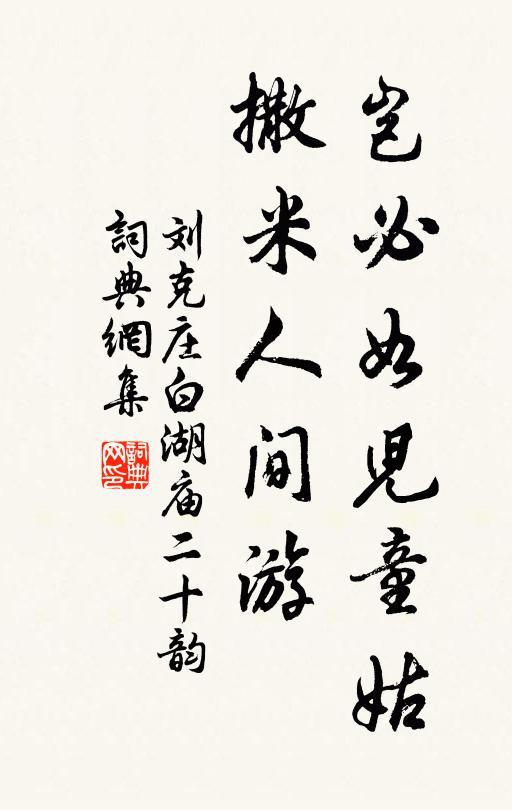 岂必如児童姑
撒米人间游
刘克庄白湖庙二十韵
詞典網集
詞典网印